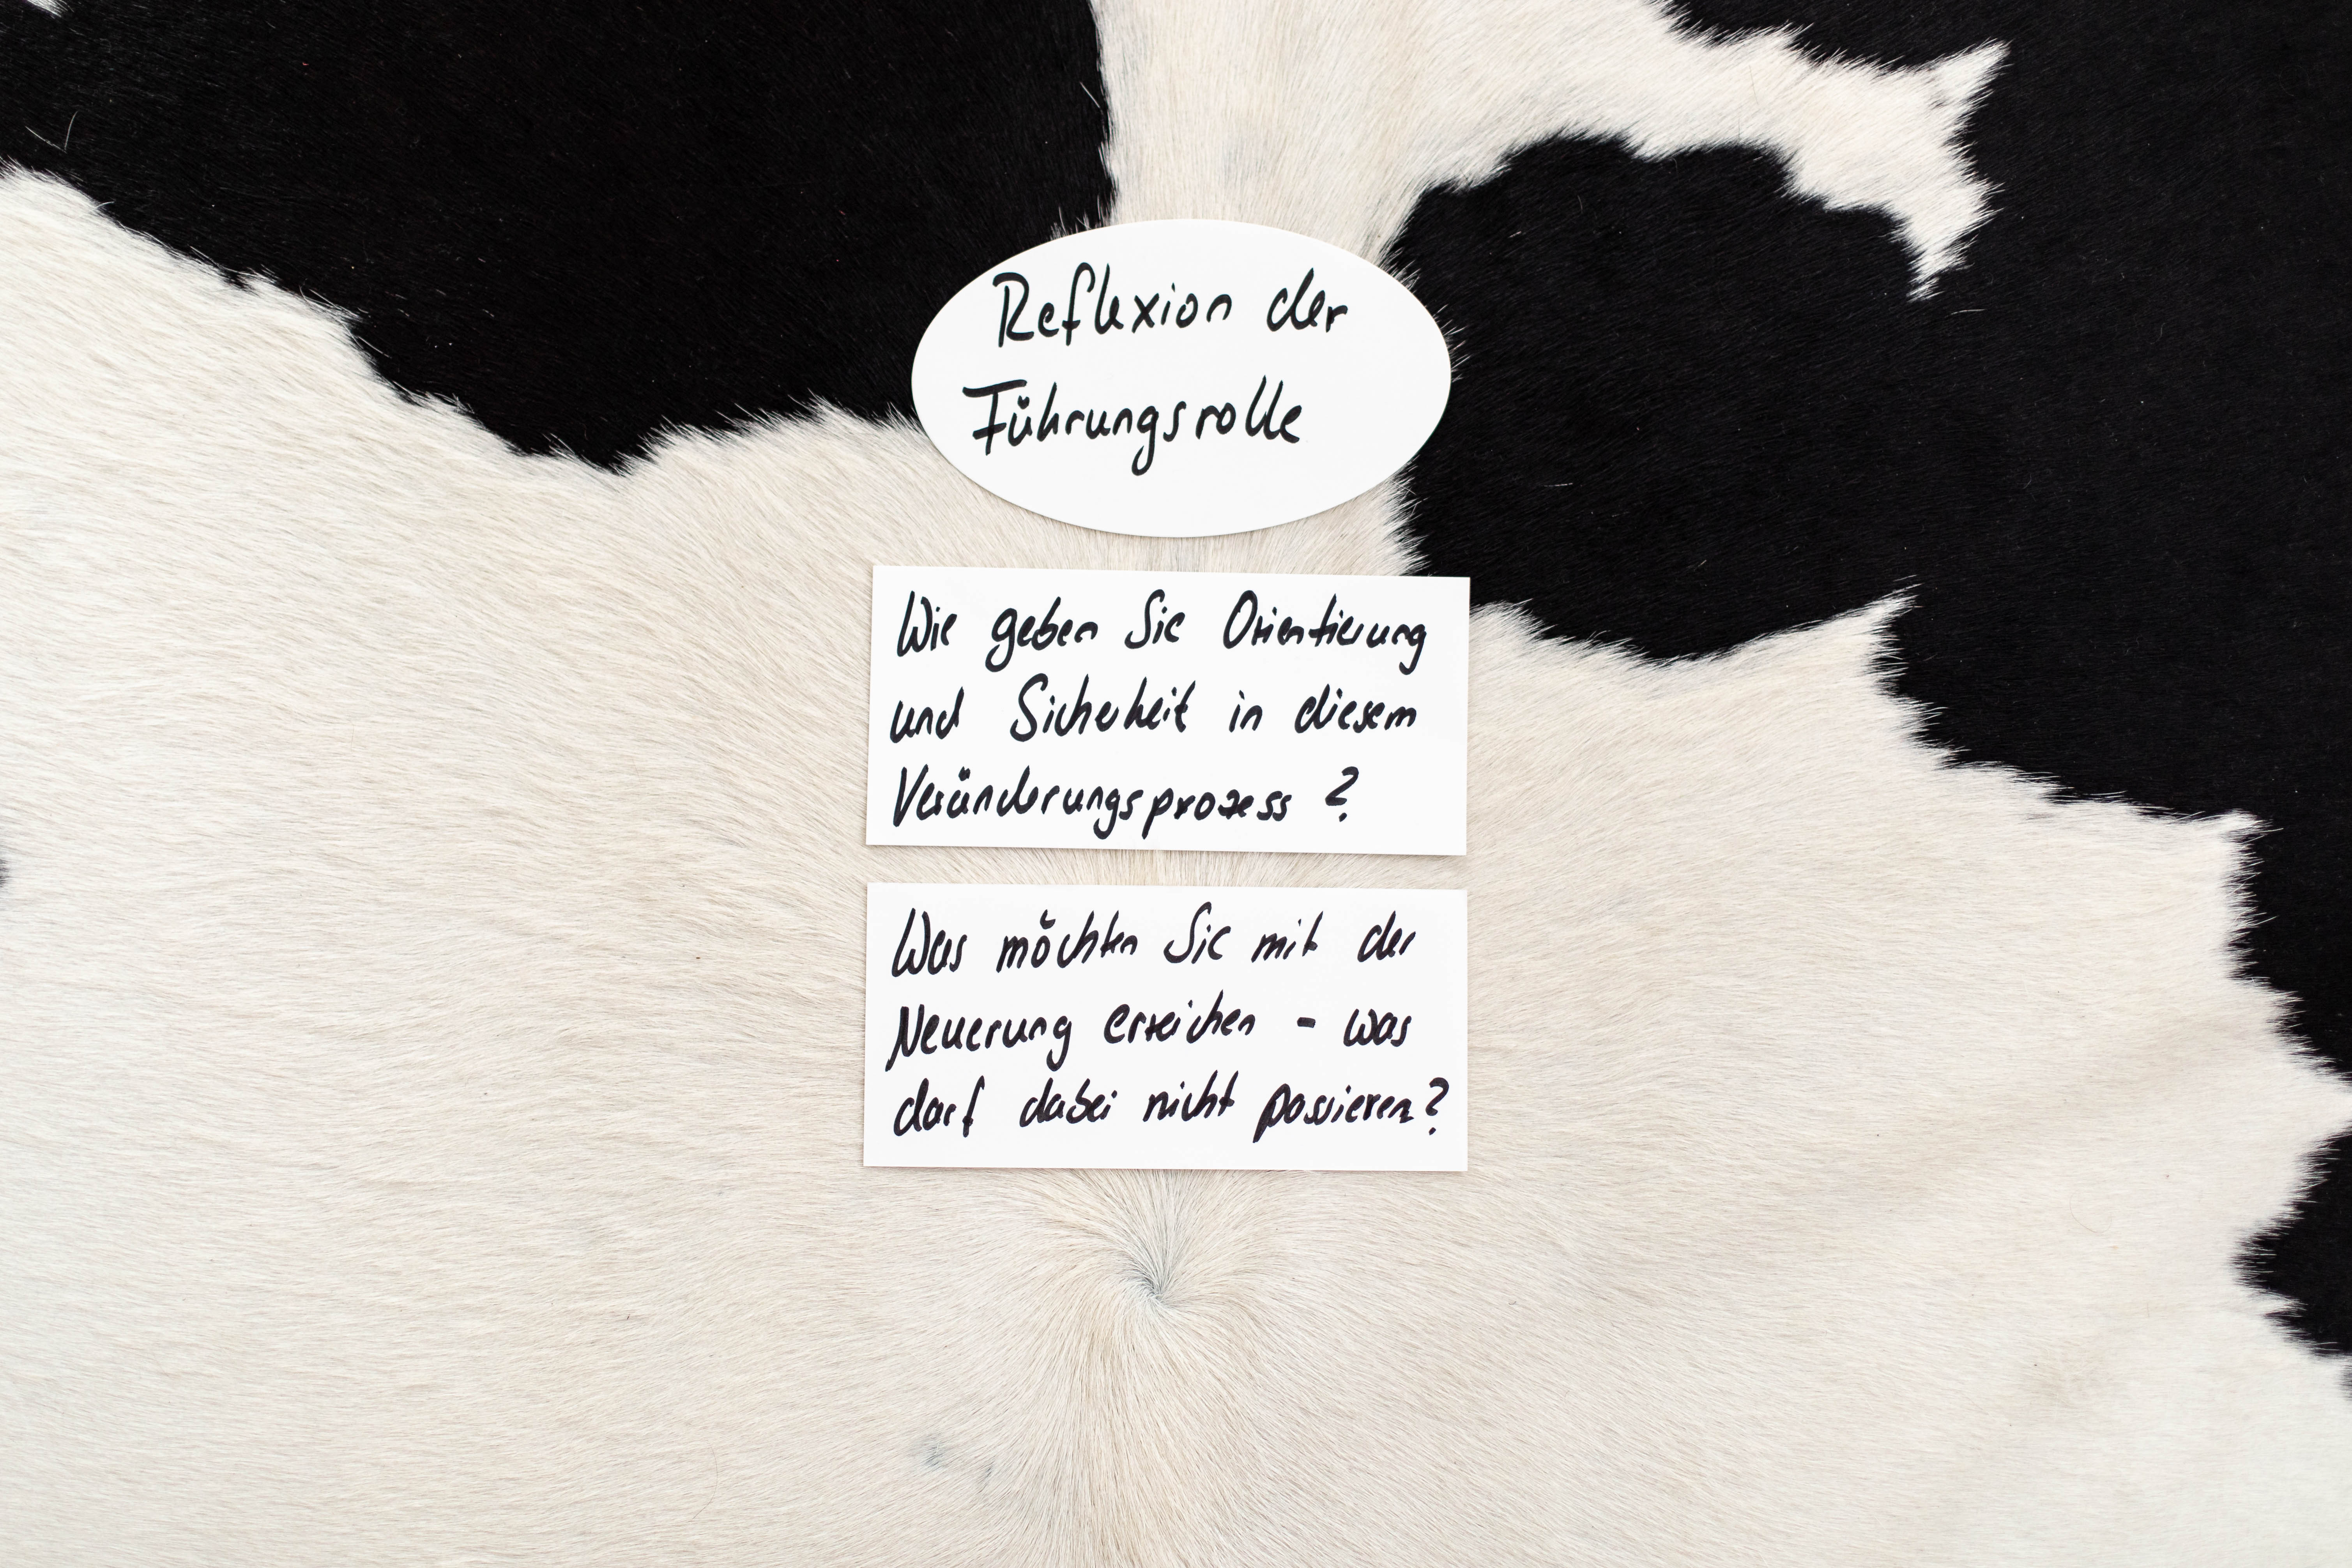 Reflexion der
Führungsrolle
Wie geben Sie Orientierung
und Sicherheit in diesem
Veränderungsprozess ?
Was möchten Sie mit der
Neuerung erreichen - was
darf dabei nicht passieren?